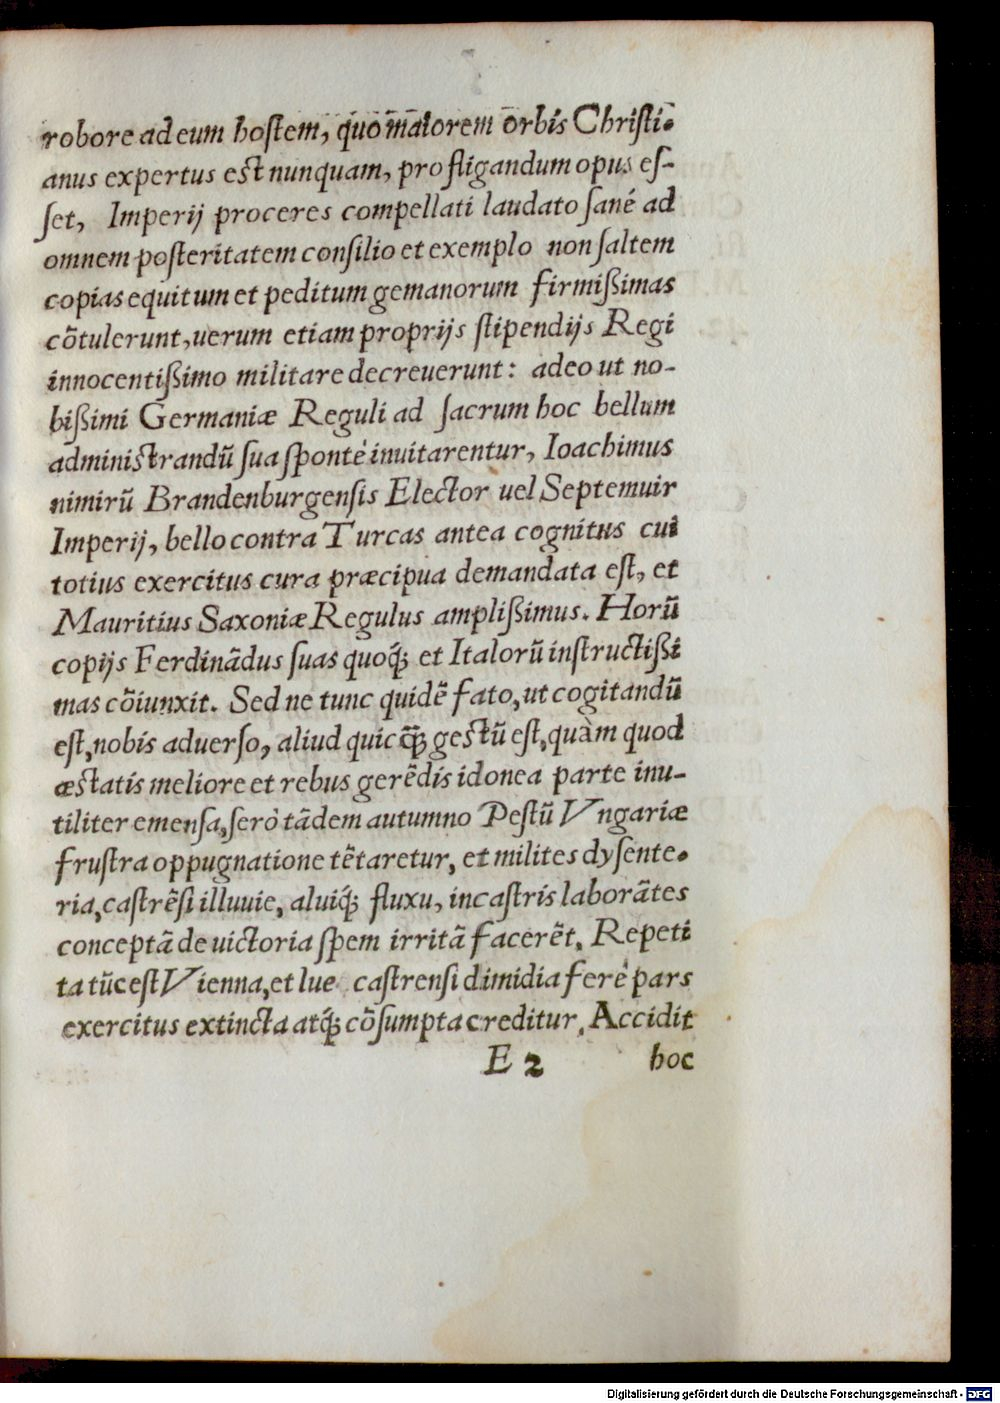 robore ad eum hostem, quo maiorem orbis Christi-
anus expertus est nunquam, profligandum opus es-
set, Imperij proceres compellati laudato sanè ad
omnem posteritatem consilio et exemplo non saltem
copias equitum et peditum gemanorum firmißimas
cõtulerunt, uerum etiam proprijs stipendijs Regi
innocentißimo militare decreuerunt: adeo ut no-
bißimi Germaniæ Reguli ad sacrum hoc bellum
administrandũ sua spontè inuitarentur, Ioachimus
nimirũ Brandenburgensis Elector uel Septemuir
Imperij, bello contra Turcas antea cognitus cui
totius exercitus cura præcipua demandata est, et
Mauritius Saxoniæ Regulus amplißimus. Horũ
copijs Ferdinãdus suas quoq́; et Italorũ instructißi
mas cõiunxit. Sed ne tunc quidẽ fato, ut cogitandũ
est, nobis aduerso, aliud quicq̃; gestũ est, quàm quod
æstatis meliore et rebus gerẽdis idonea parte inu-
tiliter emensa, serò tãdem autumno Pestũ Vngariæ
frustra oppugnatione tẽtaretur, et milites dysente-
ria, castrẽsi illuuie, aluiq́; fluxu, in castris laborãtes
conceptã de uictoria spem irritã facerẽt, Repeti
ta tũc est Vienna, et lue castrensi dimidia ferè pars
exercitus extincta atq́; cõsumpta creditur, Accidit
E 2 hoc
Digitalisierung gefördert durch die Deutsche Forschungsgemeinschaft - DFG